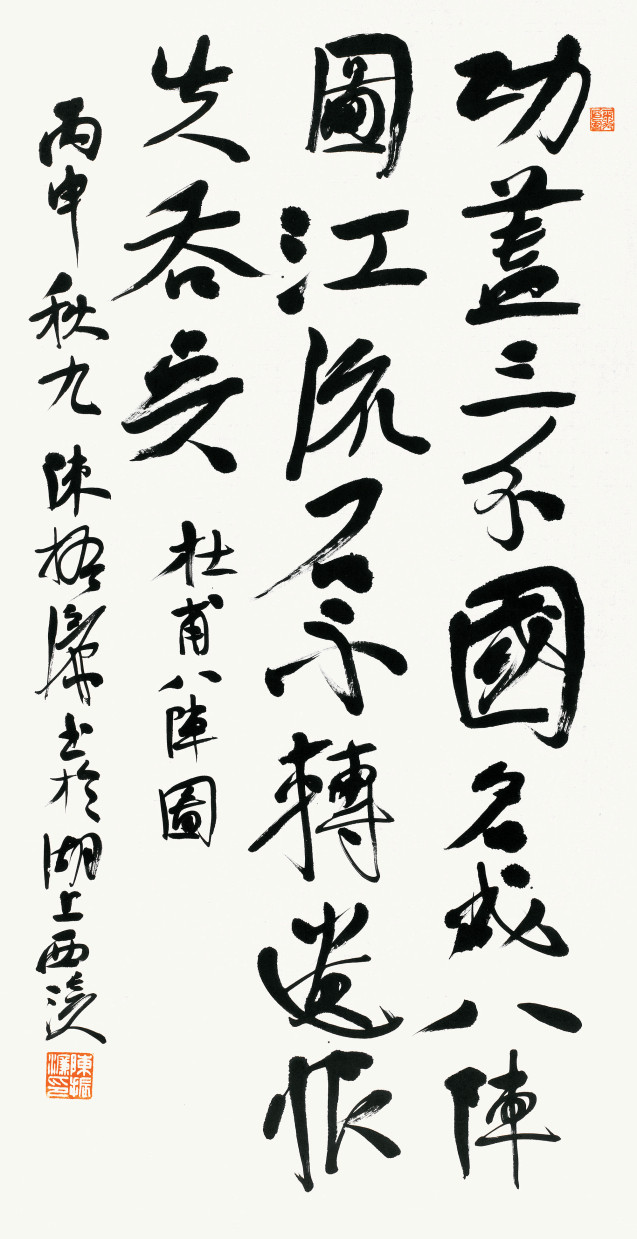 功蓋三分國名成八陣
圖江流石不轉遺恨
失吞吴 杜甫八陣圖
丙申秋九陳振濂書於湖上西溪
陳振濂印